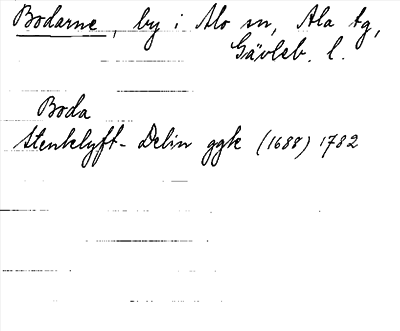 Bodarne, by i Alo sn, Ala tg,
Gävleb. l.
Boda
Stenklyft- Delin ggk (1688) 1782